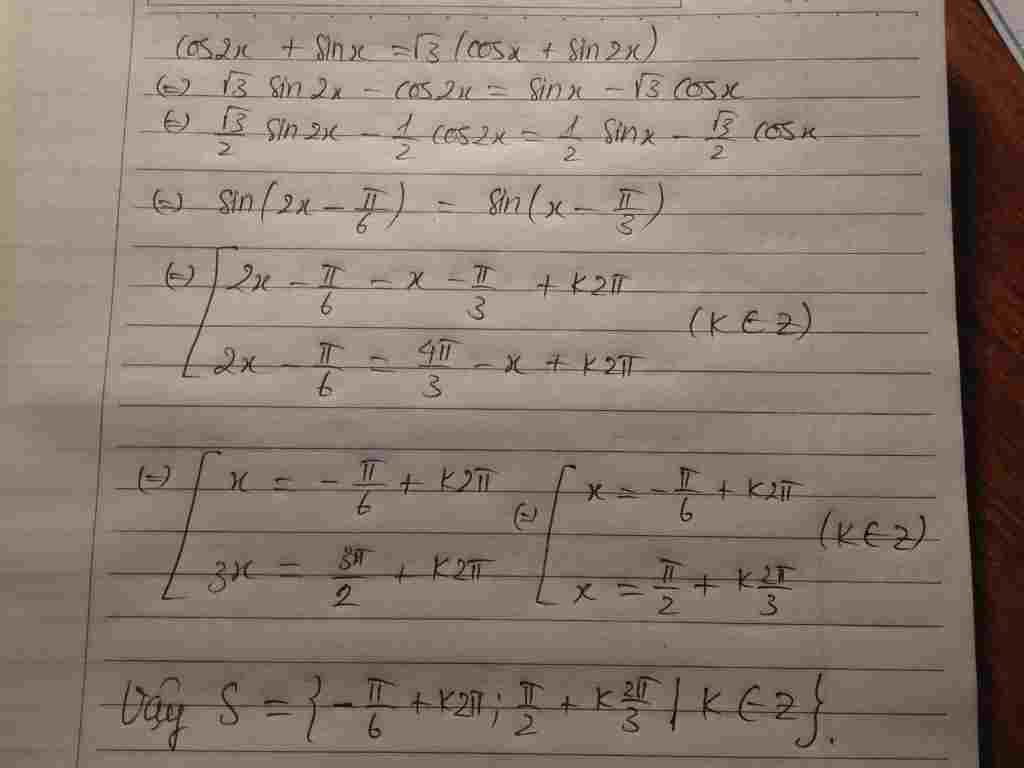 cos2x + sinx = √3 (cosx + sin2x)
(=) √3 sin2x - cos2x = sinx - √3 cosx
(=) √3/2 sin2x - 1/2 cos2x = 1/2 sinx - √3/2 cosx
(=) sin(2x - π/6) = sin(x - π/3)
(=) [ 2x - π/6 = x - π/3 + k2π
2x - π/6 = 4π/3 - x + k2π (k ∈ Z)
(=) [ x = -π/6 + k2π (=) [ x = -π/6 + k2π
3x = 3π/2 + k2π x = π/2 + k2π/3 (k ∈ Z)
Vậy S = {-π/6 + k2π; π/2 + k2π/3 | k ∈ Z}.